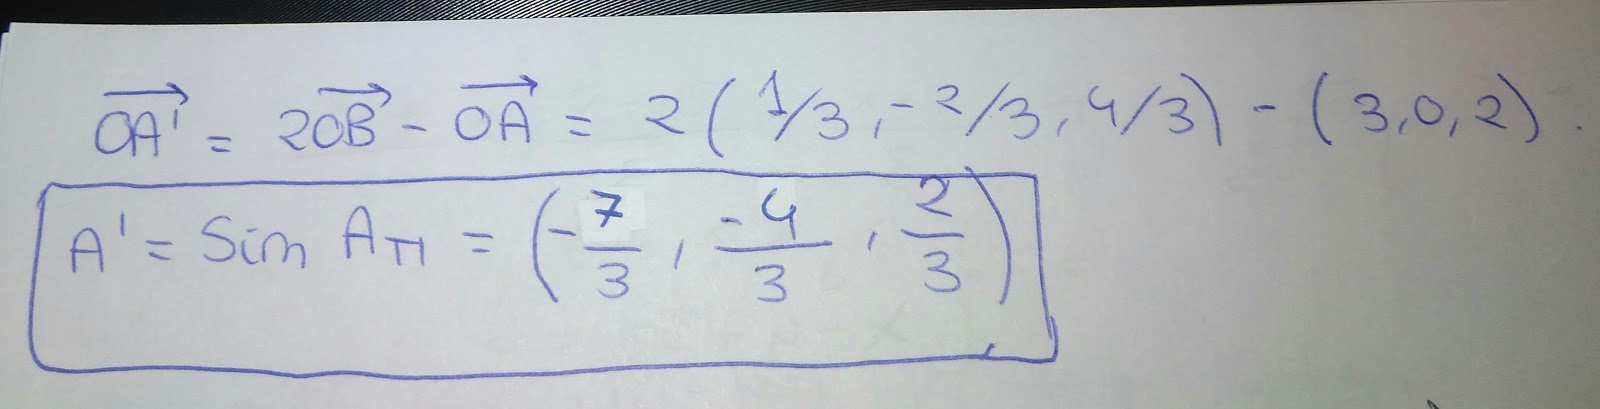 OA' = 2OB - OA = 2(1/3, -2/3, 4/3) - (3,0,2).
A' = Sim Aπ = (-7/3, -4/3, 2/3)